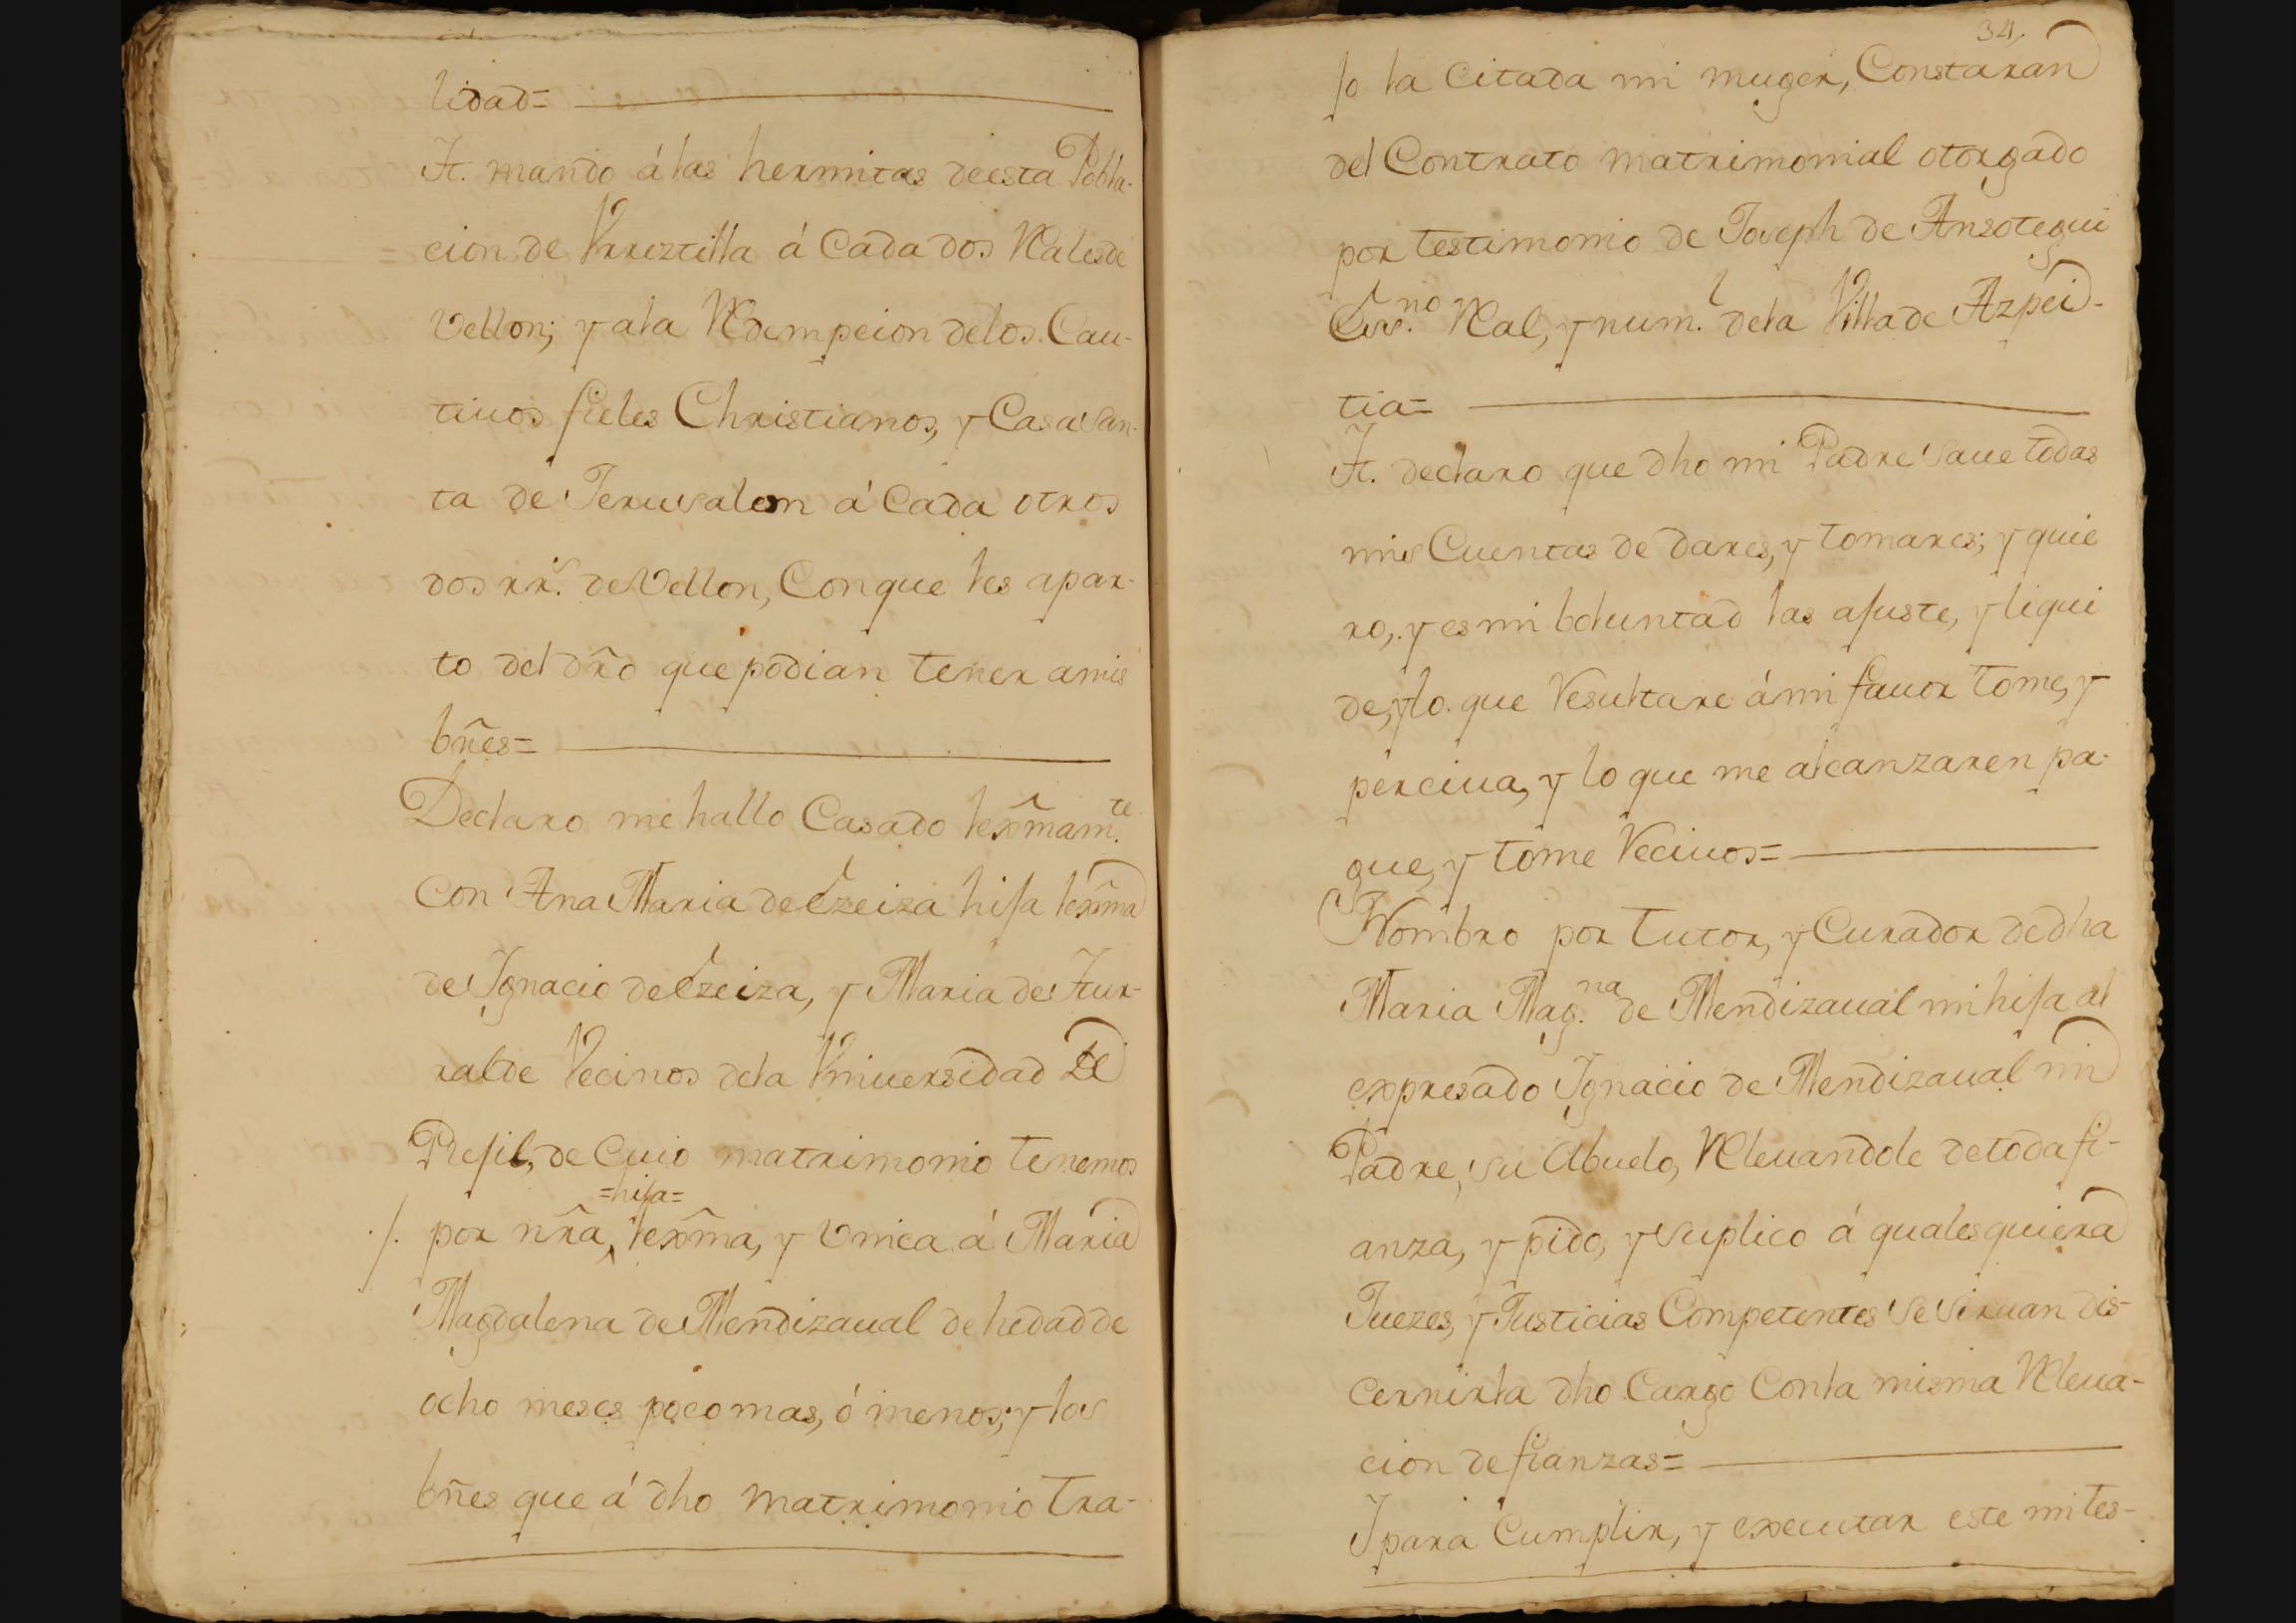 lidad=
It. mando á las hermitas de esta Pobla-
cion de Vrreztilla á Cada dos Rales de
Vellon; y ala Redempcion delos Cau-
tiuos fieles Christianos, y Casa San-
ta de Jerusalem á Cada otros
dos rrs. de Vellon, Conque les apar-
to del dr̃o que podian tener amis
bñes=
Declaro me hallo Casado lexm̃amte.
con Ana Maria de Ezeiza hija lexm̃a
de Ignacio de Ezeiza, y Maria de Itur-
ralde Vecinos dela Vniuersidad de
Rejil, de Cuio matrimonio tenemos
=hija=
por nr̃a, lexm̃a, y Vnica á Maria
Magdalena de Mendizaual de hedad de
ocho meses poco mas, ó menos; y los
bñes que á dho matrimonio tra-
34
jo la Citada mi muger, Constaran
del Contrato matrimonial otorgado
por testimonio de Joseph de Ansotegui
Essno. Ral, y numl. dela Villa de Azpei-
tia=
It. declaro que dho mi Padre saue todas
mis Cuentas de dares, y tomares; y quie
ro, y es mi boluntad las ajuste, y liqui
de, y lo que Resultare á mi fauor tome, y
perciua, y lo que me alcanzaren pa-
gue, y tome Reciuos=
Nombro por tutor, y Curador de dha
Maria Magna. de Mendizaual mi hija al
expresado Ignacio de Mendizaual mi
Padre, su Abuelo, Releuandole de toda fi-
anza, y pido, y suplico á qualesquiera
Juezes, y Justicias Competentes se siruan dis-
cernirla dho Cargo Con la misma Releua-
cion de fianzas=
I para Cumplir, y executar este mi tes-